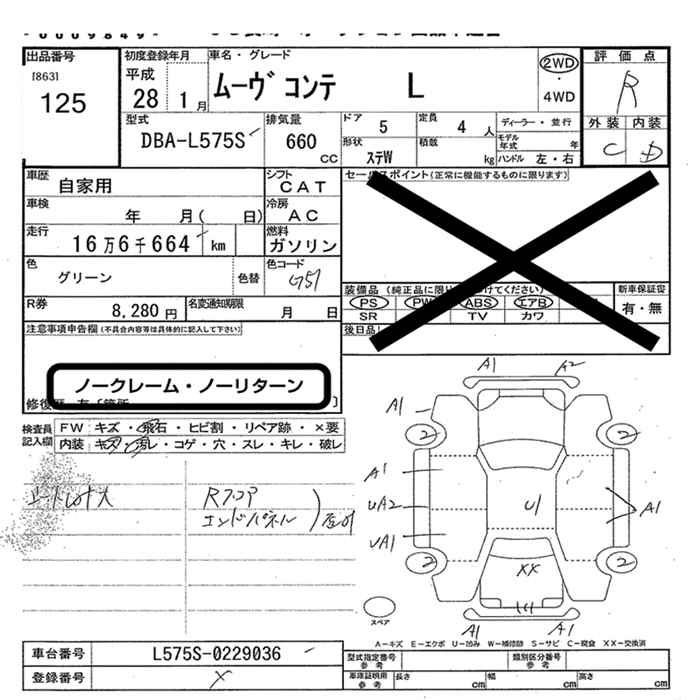 出品番号 初度登録年月 車名・グレード 評価点
[863] 平成 ②WD
125 28 1月 ムーヴ コンテ L ・ R
4WD
型式 排気量 ドア 5 定員 4 人 ディーラー・並行 外装 内装
DBA-L575S 660 cc 形状 ステW 積載 kg モデル年式 年 C D
ハンドル 左・右
車歴 自家用 シフト CAT セールスポイント(正常に機能するものに限ります)
車検 年 月( 日) 冷房 AC
走行 16万6千664 km 燃料 ガソリン
色 グリーン 色替 色コード G51
装備品 (純正品に限り 付けてください) 新車保証書
R券 8,280円 名変通知期限 月 日 PS PW ABS エアB 有・無
SR TV カワ
注意事項申告欄(不具合内容等は具体的に記入して下さい) 後日品
ノークレーム・ノーリターン
修復歴 有 [箇所 ]
検査員記入欄 FW キズ・飛石・ヒビ割・リペア跡・×要
内装 キズ・汚レ・コゲ・穴・スレ・キレ・破レ
シート 大 Rフロア
エンドパネル
A1 A2
A1
2 2
A1
UA2 U1 A1
UA1
2 2
XX
A1 A1
スペア
A-キズ E-エクボ U-凹み W-補修跡 S-サビ C-腐食 XX-交換済
車台番号 L575S-0229036 型式指定番号 参考 類別区分番号 参考
登録番号 × 車庫証明用 参考 長さ cm 幅 cm 高さ cm